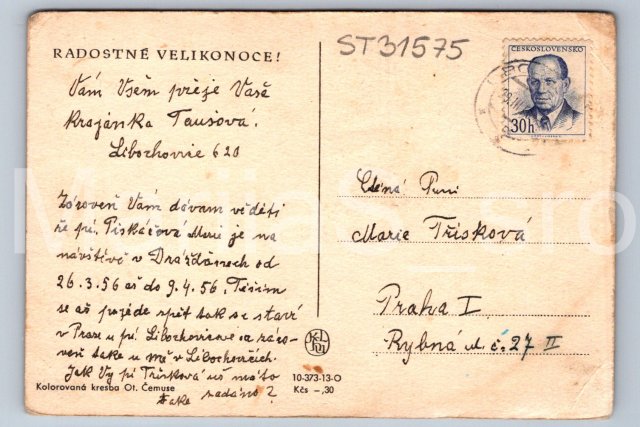 RADOSTNÉ VELIKONOCE!
Vám Všem přeje Vaše
Krajánka Taušová.
Libochovice 620
Zároveň Vám dávam věděti
že pí. Piskáčová Marie je na
návštěvě v Drážďanech od
26.3.56 až do 9.4.56. Těším
se až pojede spět tak se staví
v Praze u pí. Libochovicove za
veň take u mě v Libochovicích.
Jak Vy pí Třísková už máto
take zadáno?
Kolorovaná kresba Ot. Čemuse
10-373-13-O
Kčs -,30
ST31575
ČESKOSLOVENSKO
30h
Ctěná Paní
Marie Třísková
Praha I
Rybná ul č. 27 II